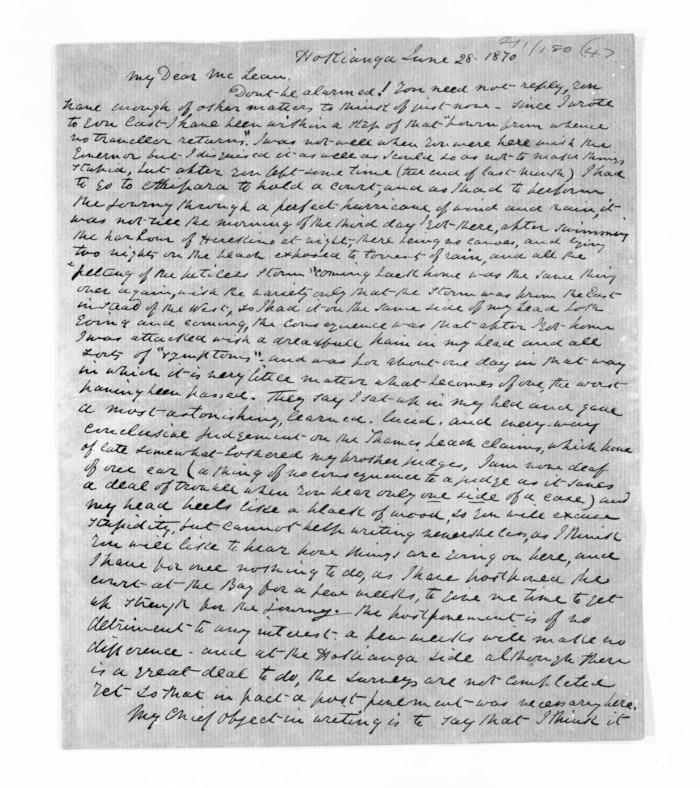 Hokianga June 28. 1870
My Dear McLean.
Dont be alarmed! You need not reply, you
have enough of other matters to think of just now - since I wrote
to you last I have been within a step of that "bourn from whence
no traveller returns". I was not well when you were here with the
Governor but I disguised it as well as I could so as not to make things
stupid, but after you left some time (the end of last month) I had
to go to Ahipara to hold a court, and as I had to perform
the journey through a perfect hurricane of wind and rain, it
was not till the morning of the third day I got there, after swimming
the harbour of Herekino at night, there being no canoes, and lying
two nights on the beach exposed to torrents of rain, and all the
"pelting of the pitiless storm" coming back home was the same thing
over again, with the variety only that the storm was from the East
instead of the West, so I had it on the same side of my head both
going and coming, the consequence was that after I got home
I was attacked with a dreadfull pain in my head and all
sorts of "symptoms" - and was for about one day in that way
in which it is very little matter what becomes of one, the worst
having been passed. They say I sat up in my bed and gave
a most astonishing, learned. lucid. and every way
conclusive judgement on the Thames beach claims, which have
of late somewhat bothered my brother judges, I am now deaf
of one ear (a thing of no consequence to a judge as it saves
a deal of trouble when you hear only one side of a case) and
my head feels like a block of wood, so you will excuse
stupidity, but cannot help writing nevertheless, as I think
you will like to hear how things are going on here, and
I have for once nothing to do, as I have postponed the
court at the Bay for a few weeks, to give me time to get
up strength for the journey - the postponement is of no
detriment to any interest - a few weeks will make no
difference - and at the Hokianga side although there
is a great deal to do, the surveys are not completed
yet so that in fact a postponement was necessary here.
My Chief object in writing is to say that I think it